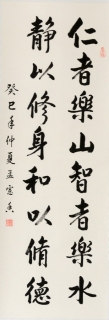 仁者樂山智者樂水
靜以修身和以脩德
癸巳年仲夏孟憲